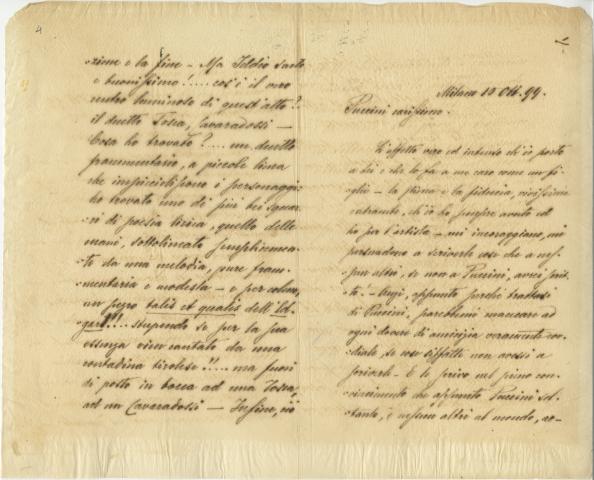 4
1
zione e la fine - Ma Iddio santo
e buonissimo!.... cos'è il vero
centro luminoso di quest'atto?..
il duetto Tosca, Cavaradossi —
Cosa ho trovato?.... un duetto
frammentario, a piccole linee
che impiccioliscono i personaggi:
ho trovato uno di più bei squar-
ci di poesia lirica, quello delle
mani, sottolineato semplicemen-
te da una melodia, pure fram-
mentaria e modesta - e per colmo,
un pezzo talis et qualis dell'Ed-
gar!!!... stupendo se per la sua
essenza vien cantato da una
contadina tirolese!!... ma fuori
di posto in bocca ad una Tosca,
ad un Cavaradossi — Infine, ciò
Milano 10 Ott. 99.
Puccini carissimo.
L'affetto vero ed intenso ch'io porto
a lei e che lo fa a me caro come un fi-
glio - la stima e la fiducia, vivissime
entrambe, ch'io ho sempre avuto ed
ho per l'artista - mi incoraggiano, mi
persuadono a scriverle cose che a nes-
sun altri, se non a Puccini, avrei scrit-
te! - Anzi, appunto perchè trattasi
di Puccini, parrebbemi mancare ad
ogni dovere di amicizia veramente cor-
diale, se cose siffatte non avessi a
scriverle - E le scrivo nel pieno con-
vincimento che appunto Puccini sol-
tanto, e nessun altri al mondo,